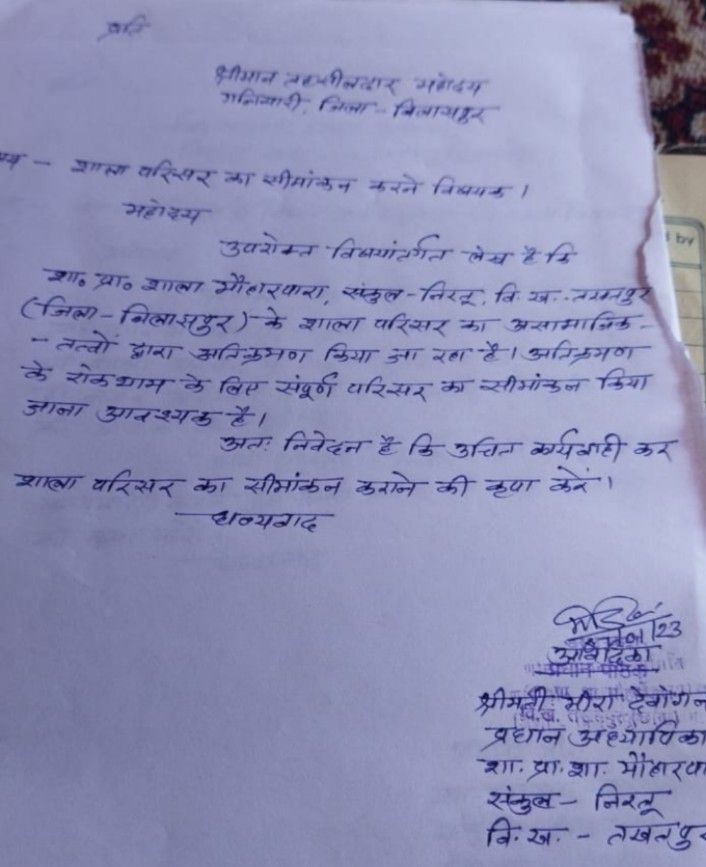 प्रति
श्रीमान तहसीलदार महोदय
गनियारी, जिला - बिलासपुर
- शाला परिसर का सीमांकन करने विषयक।
महोदय
उपरोक्त विषयांतर्गत लेख है कि
शा॰ प्रा॰ शाला मौहारपारा, संकुल - निरतू, वि. ख. - तखतपुर
(जिला - बिलासपुर) के शाला परिसर का असामाजिक -
- तत्वों द्वारा अतिक्रमण किया जा रहा है। अतिक्रमण
के रोकथाम के लिए संपूर्ण परिसर का सीमांकन किया
जाना आवश्यक है।
अतः निवेदन है कि उचित कार्यवाही कर
शाला परिसर का सीमांकन कराने की कृपा करें।
धन्यवाद
आवेदिका
प्रधान पाठक
श्रीमती मीरा देवांगन
प्रधान अध्यापिका
शा. प्रा. शा. मौहारपा
संकुल - निरतू
वि. ख. - तखतपुर
by